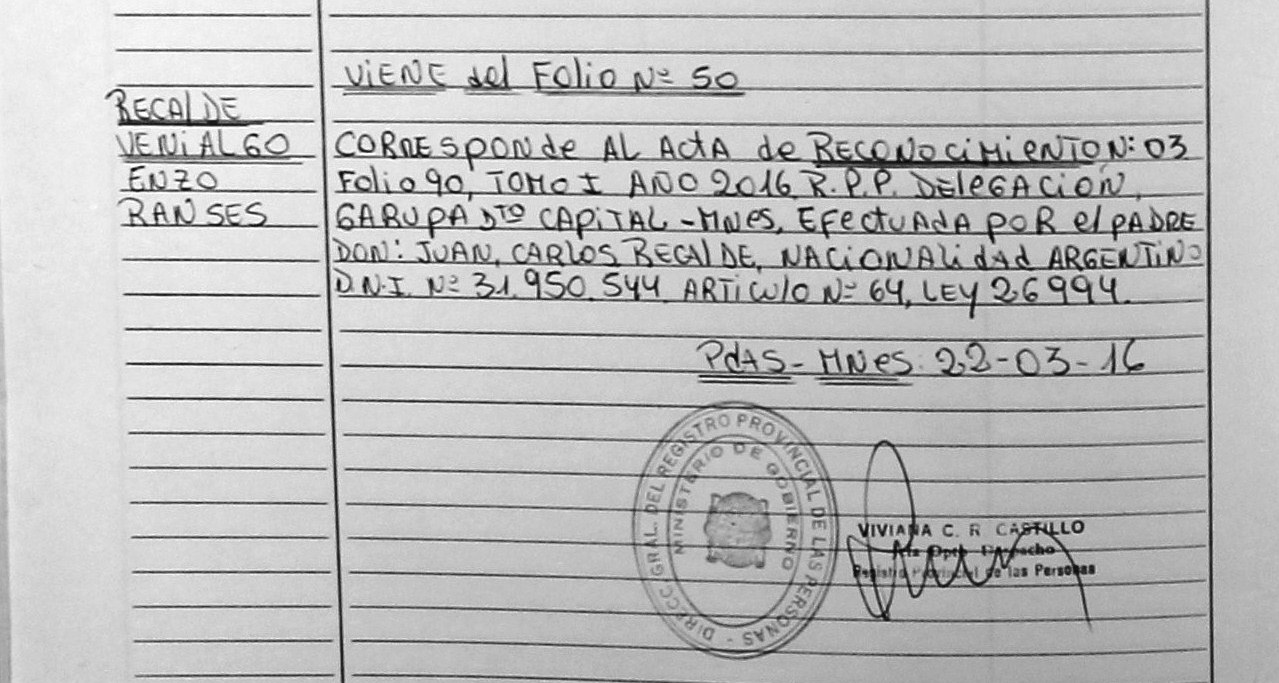 VIENE del Folio Nº 50
RECALDE
VENIALGO
ENZO
RANSES
CORRESponde AL ActA de RECONOCIMIENTO N: 03
Folio 90, TOMO I AÑO 2016 R.P.P. DELEGACIÓN
GARUPA DTO CAPITAL - MNES, EFECTUADA POR el PADRE
DON: JUAN, CARLOS RECALDE, NACIONALIDAD ARGENTINO
D.N.I. Nº 31.950.544 ARTICULO Nº 64, LEY 26994.
PdAS - MNES: 22-03-16
DIRECC. GRAL. DEL REGISTRO PROVINCIAL DE LAS PERSONAS -
MINISTERIO DE GOBIERNO
VIVIANA C. R. CASTILLO
Dpto Despacho
Registro Provincial de las Personas